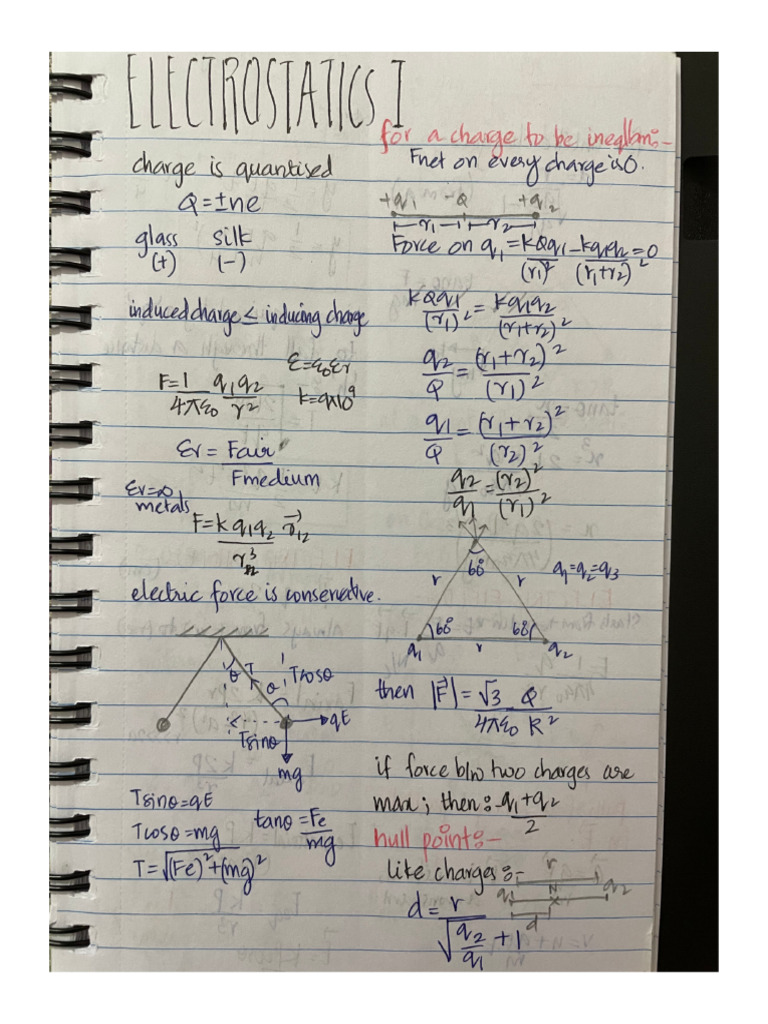 ELECTROSTATICS I
charge is quantised
Q = ±ne
glass silk
(+) (-)
induced charge ≤ inducing charge
ε = ε₀εr
F = 1/4πε₀ q₁q₂/r²
k = 9x10⁹
εr = Fair/Fmedium
εr = ∞
metals
F = k q₁q₂/r₁₂³ r⃗₁₂
electric force is conservative.
θ T Tcosθ
θ
qE
Tsinθ
mg
Tsinθ = qE
Tcosθ = mg
tanθ = Fe/mg
T = √(Fe)² + (mg)²
for a charge to be in eqlbm:-
Fnet on every charge is 0.
+q₁ -Q +q₂
r₁ r₂
Force on q₁ = kQq₁/(r₁)² - kq₁q₂/(r₁+r₂)² = 0
kQq₁/(r₁)² = kq₁q₂/(r₁+r₂)²
q₂/Q = (r₁+r₂)²/(r₁)²
q₁/Q = (r₁+r₂)²/(r₂)²
q₂/q₁ = (r₂)²/(r₁)²
60°
r r q₁=q₂=q₃
60° 60°
q₁ r q₂
then |F⃗| = √3 Q/4πε₀ R²
if force b/w two charges are
max; then:- q₁+q₂/2
null point:-
like charges:-
r
q₁ N q₂
d
d = r/√q₂/q₁ + 1